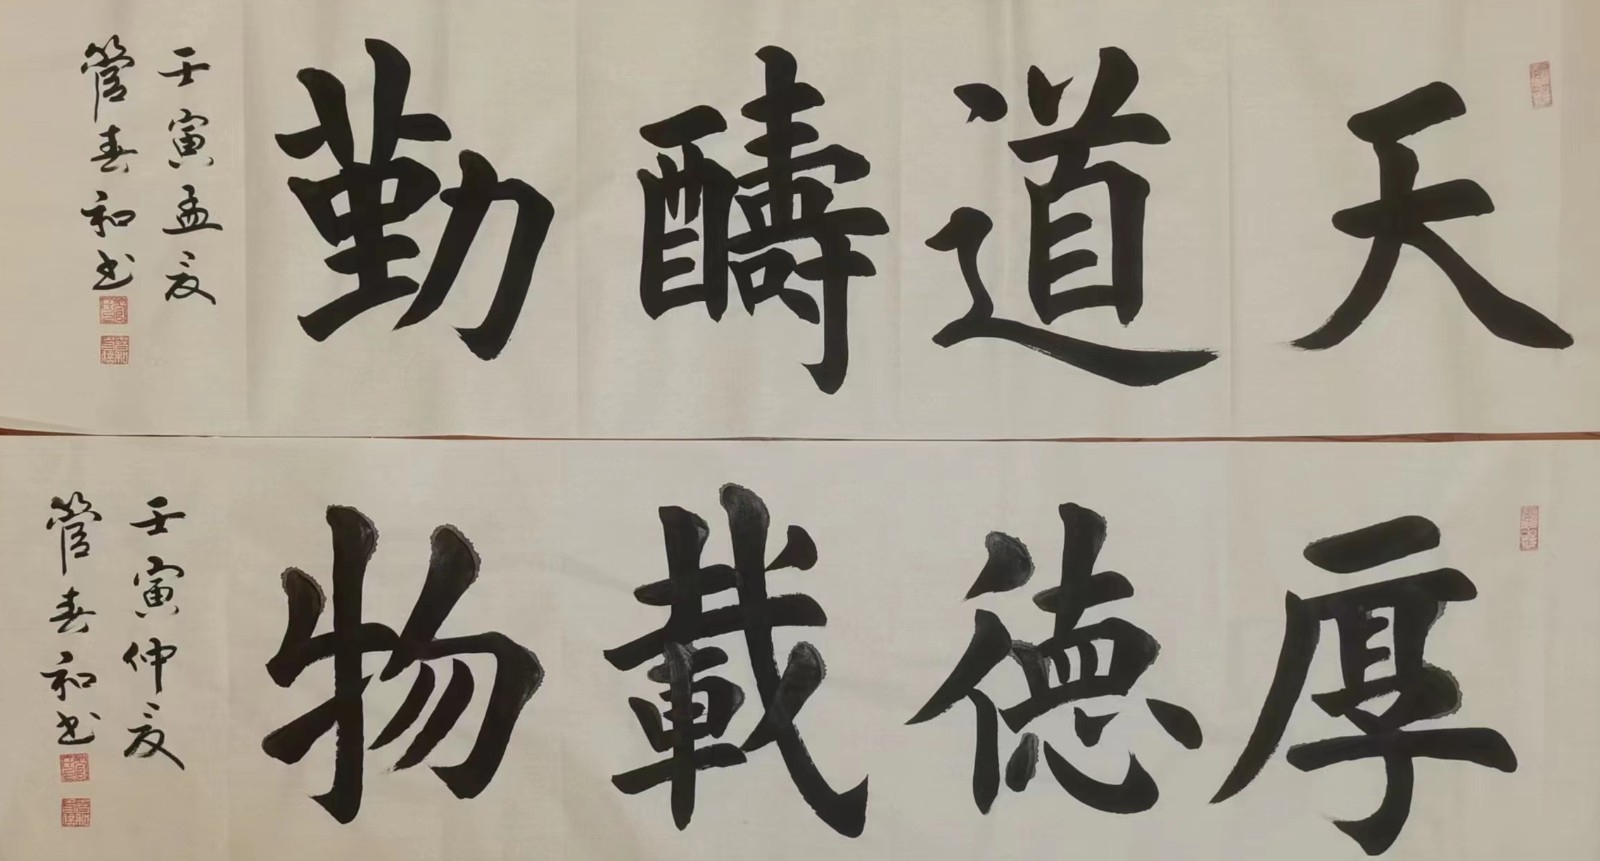 天道醻勤
壬寅孟夏
管春和书
厚德載物
壬寅仲夏
管春和书